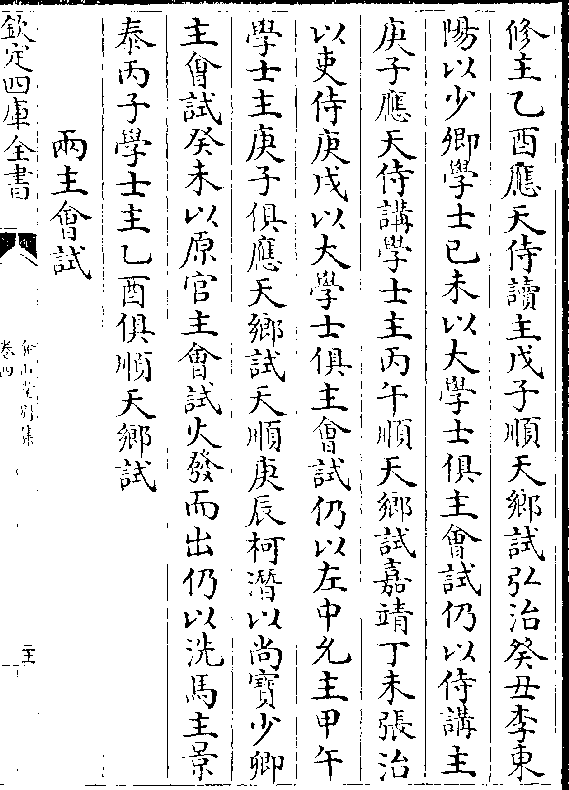 修主乙酉應天侍讀主戊子順天鄉試弘治癸丑李東
陽以少卿學士已未以大學士俱主會試仍以侍講主
庚子應天侍講學士主丙午順天鄉試嘉靖丁未張治
以吏侍庚戌以大學士俱主會試仍以左中允主甲午
學士主庚子俱應天鄉試天順庚辰柯潛以尚寶少卿
主會試癸未以原官主會試火發而出仍以洗馬主景
泰丙子學士主乙酉俱順天鄉試
兩主會試
欽定四庫全書
弇山堂别集
卷四